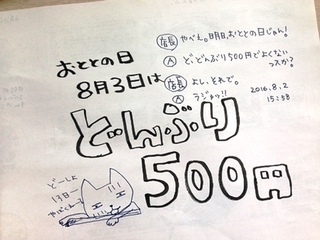 おととの日
8月3日は
どんぶり
500円
店長 やべぇ。明日、おととの日じゃん!
人 ど、どんぶり500円でよくない
っスか?
店長 よし、それで。
人 ラジャッ!!
2016.8.2
15:58
どーしよ
13日ー